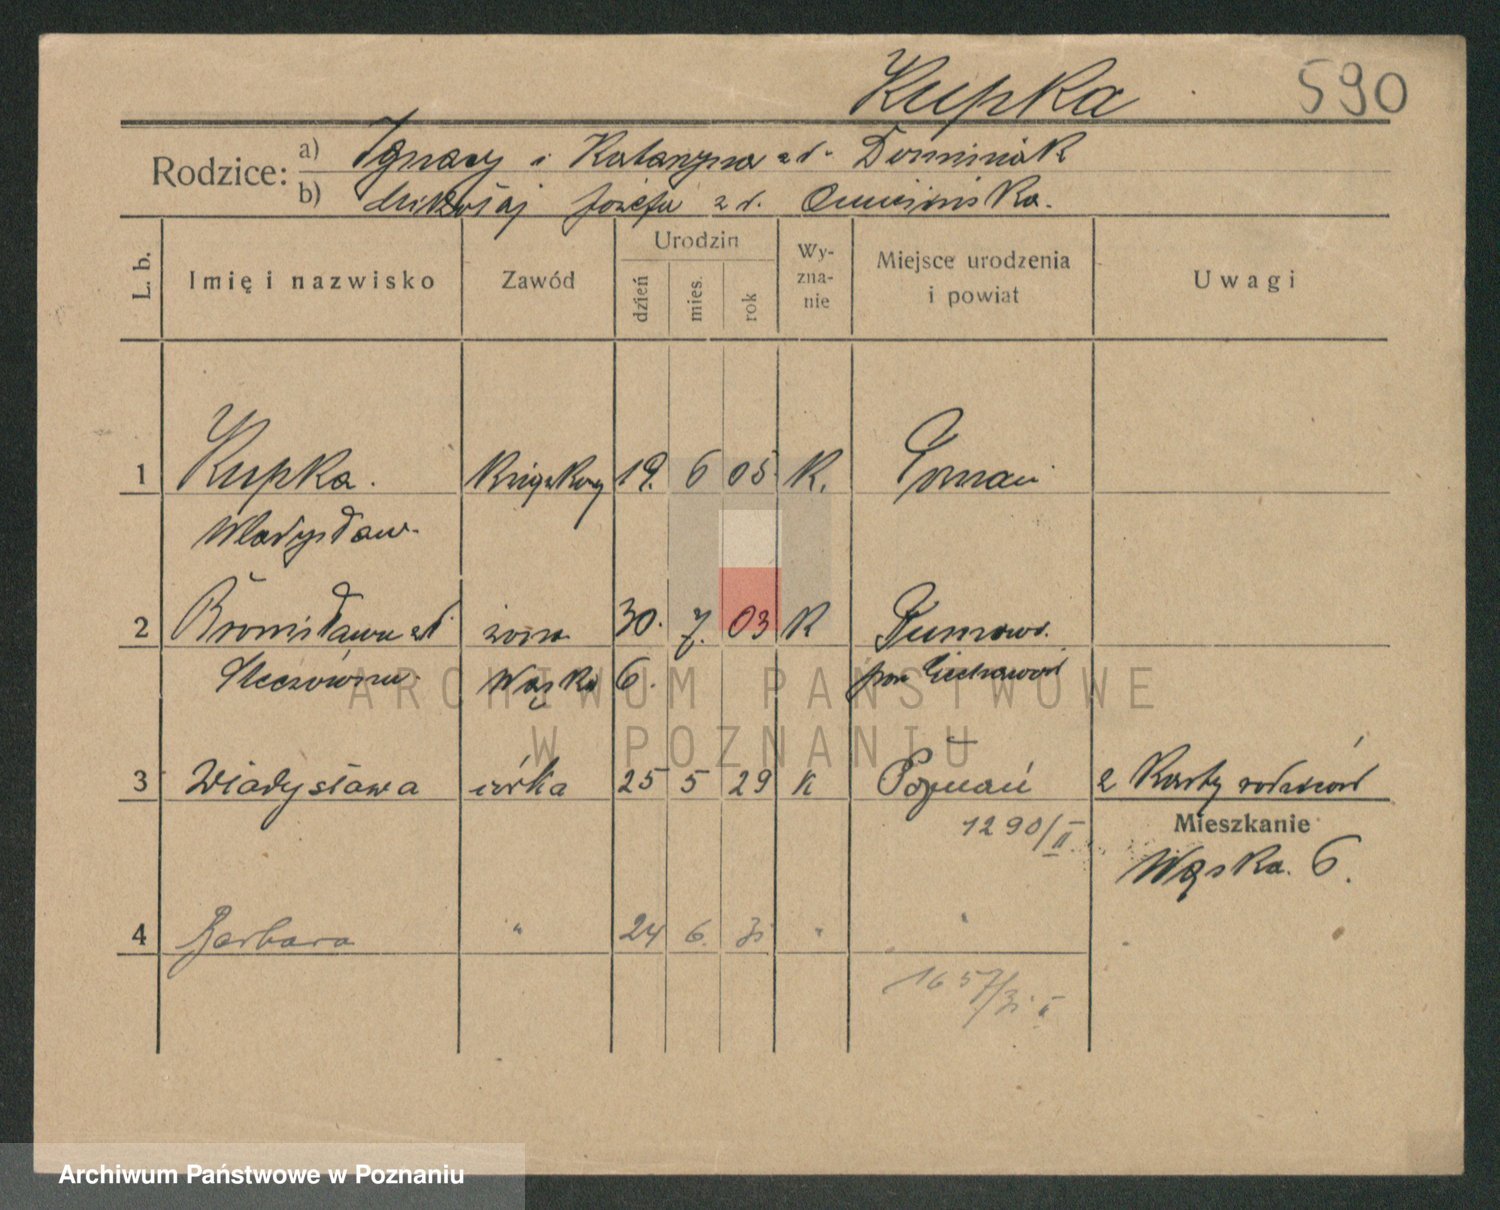 Kupka
590
Rodzice:
a) Ignacy i Katarzyna zd. Dominiak
b) Mikołaj Józefa z d.
L. b.
Imię i nazwisko
Zawód
Urodzin
dzień
mies.
rok
Wy-
zna-
nie
Miejsce urodzenia
i powiat
Uwagi
1 Kupka. 19. 6 05 K. Poznań
Władysław.
2 Bronisława zd. żona 30. 7. 03 K
Wąska 6.
3 Władysława córka 25 5 29 K Poznań 2 Karty
1290/II
Mieszkanie
Wąska. 6.
4 Barbara " 24 6. 31 " "
1657/31 II
ARCHIWUM PAŃSTWOWE
W POZNANIU
Archiwum Państwowe w Poznaniu